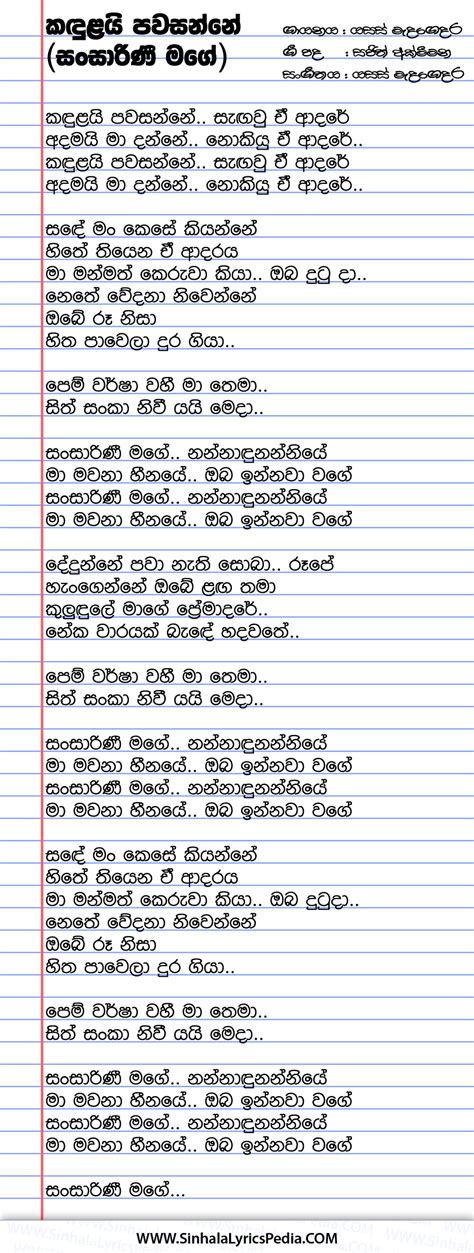 කඳුළයි පවසන්නේ
(සංසාරිණී මගේ)
ගායනය : යසස් මැදගෙදර
ගී පද : සජිත්
සංගීතය : යසස් මැදගෙදර
කඳුළයි පවසන්නේ.. සැඟවු ඒ ආදරේ
අදමයි මා දන්නේ.. නොකියු ඒ ආදරේ..
කඳුළයි පවසන්නේ.. සැඟවු ඒ ආදරේ
අදමයි මා දන්නේ.. නොකියු ඒ ආදරේ..
සඳේ මං කෙසේ කියන්නේ
හිතේ තියෙන ඒ ආදරය
මා මන්මත් කෙරුවා කියා.. ඔබ දුටු දා..
නෙතේ වේදනා නිවෙන්නේ
ඔබේ රූ නිසා
හිත පාවෙලා දුර ගියා..
පෙම් වර්ෂා වහී මා තෙමා..
සිත් සංකා නිවී යයි මෙදා..
සංසාරිණී මගේ.. නන්නාඳුනන්නියේ
මා මවනා හීනයේ.. ඔබ ඉන්නවා වගේ
සංසාරිණී මගේ.. නන්නාඳුනන්නියේ
මා මවනා හීනයේ.. ඔබ ඉන්නවා වගේ
දේදුන්නේ පවා නැති සොබා.. රූපේ
හැංගෙන්නේ ඔබේ ළඟ තමා
කුලුඳුලේ මාගේ ප්‍රේමාදරේ..
නේක වාරයක් බැඳේ හදවතේ..
පෙම් වර්ෂා වහී මා තෙමා..
සිත් සංකා නිවී යයි මෙදා..
සංසාරිණී මගේ.. නන්නාඳුනන්නියේ
මා මවනා හීනයේ.. ඔබ ඉන්නවා වගේ
සංසාරිණී මගේ.. නන්නාඳුනන්නියේ
මා මවනා හීනයේ.. ඔබ ඉන්නවා වගේ
සඳේ මං කෙසේ කියන්නේ
හිතේ තියෙන ඒ ආදරය
මා මන්මත් කෙරුවා කියා.. ඔබ දුටුදා..
නෙතේ වේදනා නිවෙන්නේ
ඔබේ රූ නිසා
හිත පාවෙලා දුර ගියා..
පෙම් වර්ෂා වහී මා තෙමා..
සිත් සංකා නිවී යයි මෙදා..
සංසාරිණී මගේ.. නන්නාඳුනන්නියේ
මා මවනා හීනයේ.. ඔබ ඉන්නවා වගේ
සංසාරිණී මගේ.. නන්නාඳුනන්නියේ
මා මවනා හීනයේ.. ඔබ ඉන්නවා වගේ
සංසාරිණී මගේ...
WWW.SinhalaLyricsPedia.COM